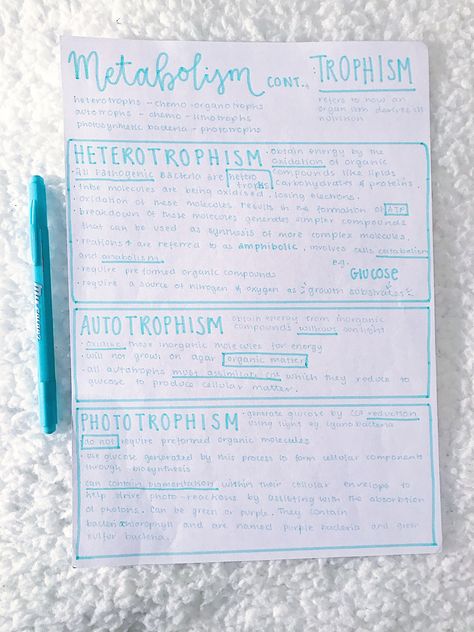 Metabolism CONT. : TROPHISM
heterotrophs - chemo-organotrophs
autotrophs - chemo-lithotrophs
photosynthetic bacteria - phototrophs
refers to how an
organism derives its
nutrition
HETEROTROPHISM • obtain energy by the
oxidation of organic
• all pathogenic bacteria are heterotrophs compounds like lipids
carbohydrates & proteins.
• these molecules are being oxidised, losing electrons.
• oxidation of these molecules results in the formation of ATP
• breakdown of these molecules generates simpler compounds
that can be used as synthesis of more complex molecules.
• reactions are referred to as amphibolic, involves cells catabolism
and anabolism
e.g.
GLUCOSE
• require preformed organic compounds
• require a source of nitrogen & oxygen as growth substrates
AUTOTROPHISM obtain energy from inorganic
compounds without sunlight
• oxidise these inorganic molecules for energy
• will not grow on agar organic matter
• all autotrophs must assimilate CO2 which they reduce to
glucose to produce cellular matter.
PHOTOTROPHISM • generate glucose by CO2 reduction
using light eg. cyanobacteria
do not require preformed organic molecules
• use glucose generated by this process to form cellular components
through - biosynthesis
can contain pigmentation within their cellular envelope to
help drive photo-reactions by assisting with the absorbtion
of photons. Can be green or purple. They contain
bacteriochlorophyll and are named purple bacteria and green
sulfur bacteria.